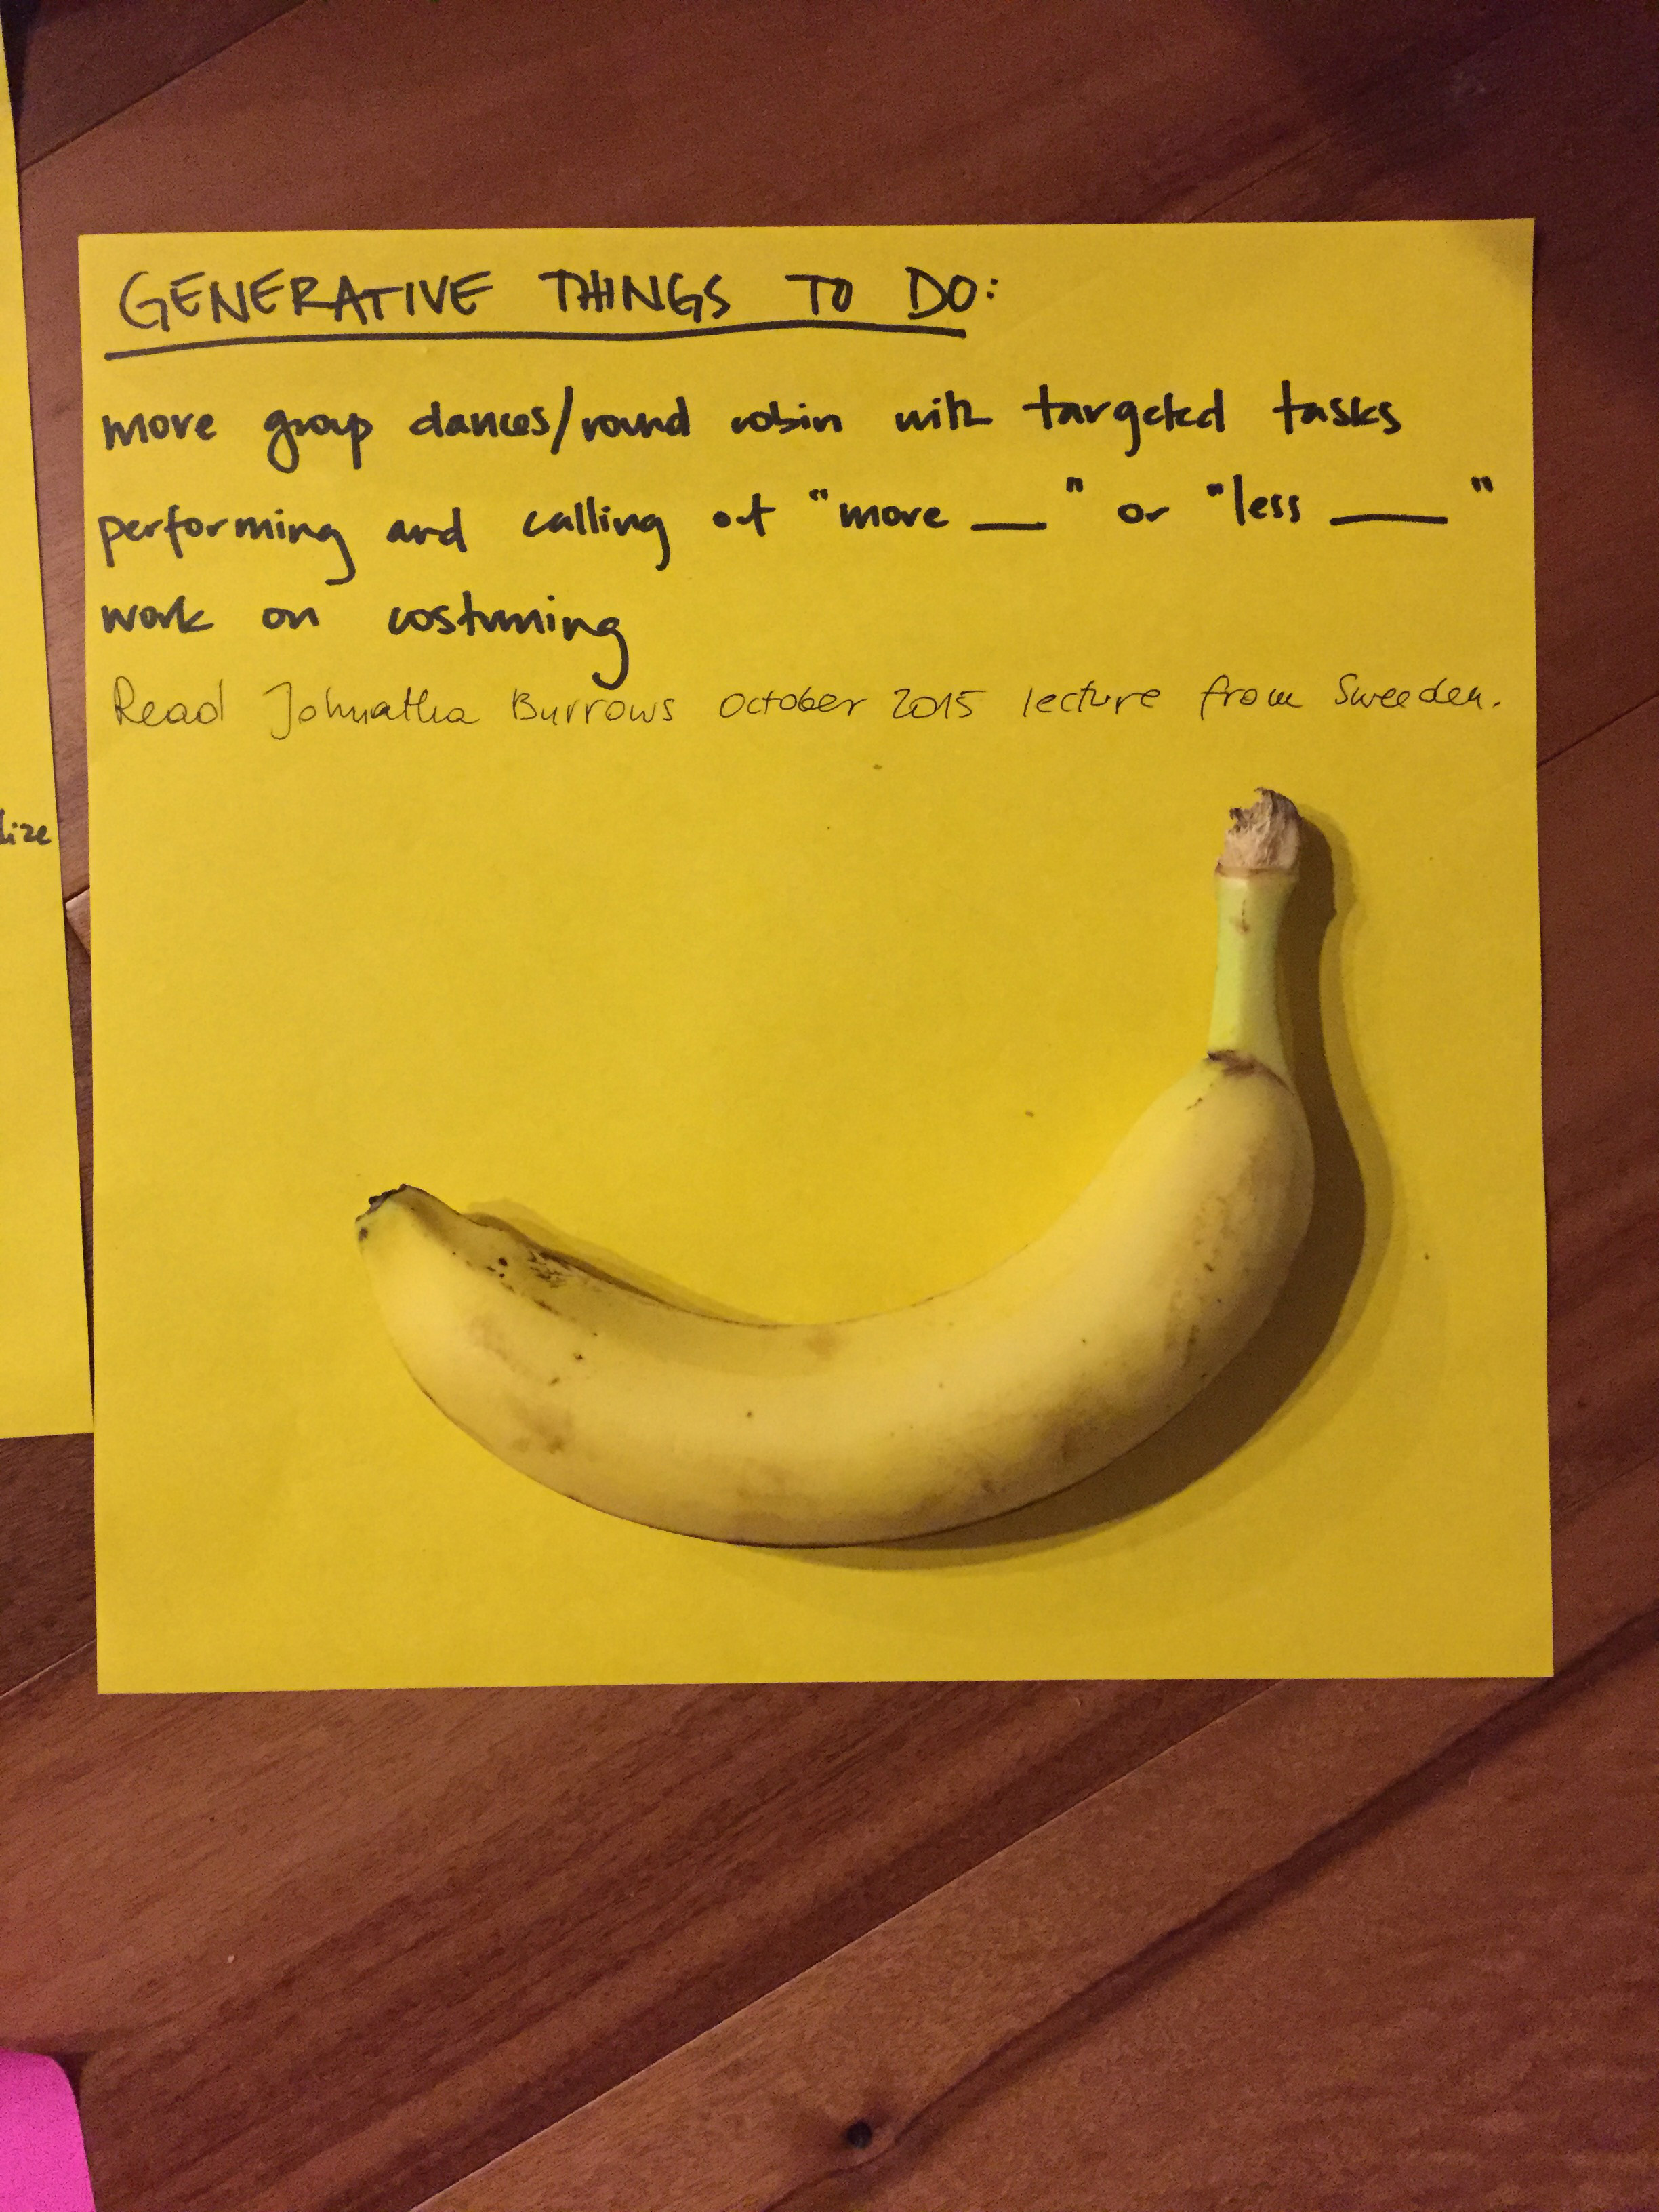 GENERATIVE THINGS TO DO:
more group dances/round robin with targeted tasks
performing and calling out "more __" or "less ___"
work on costuming
Read Johnatha Burrows October 2015 lecture from Sweeden.
lize